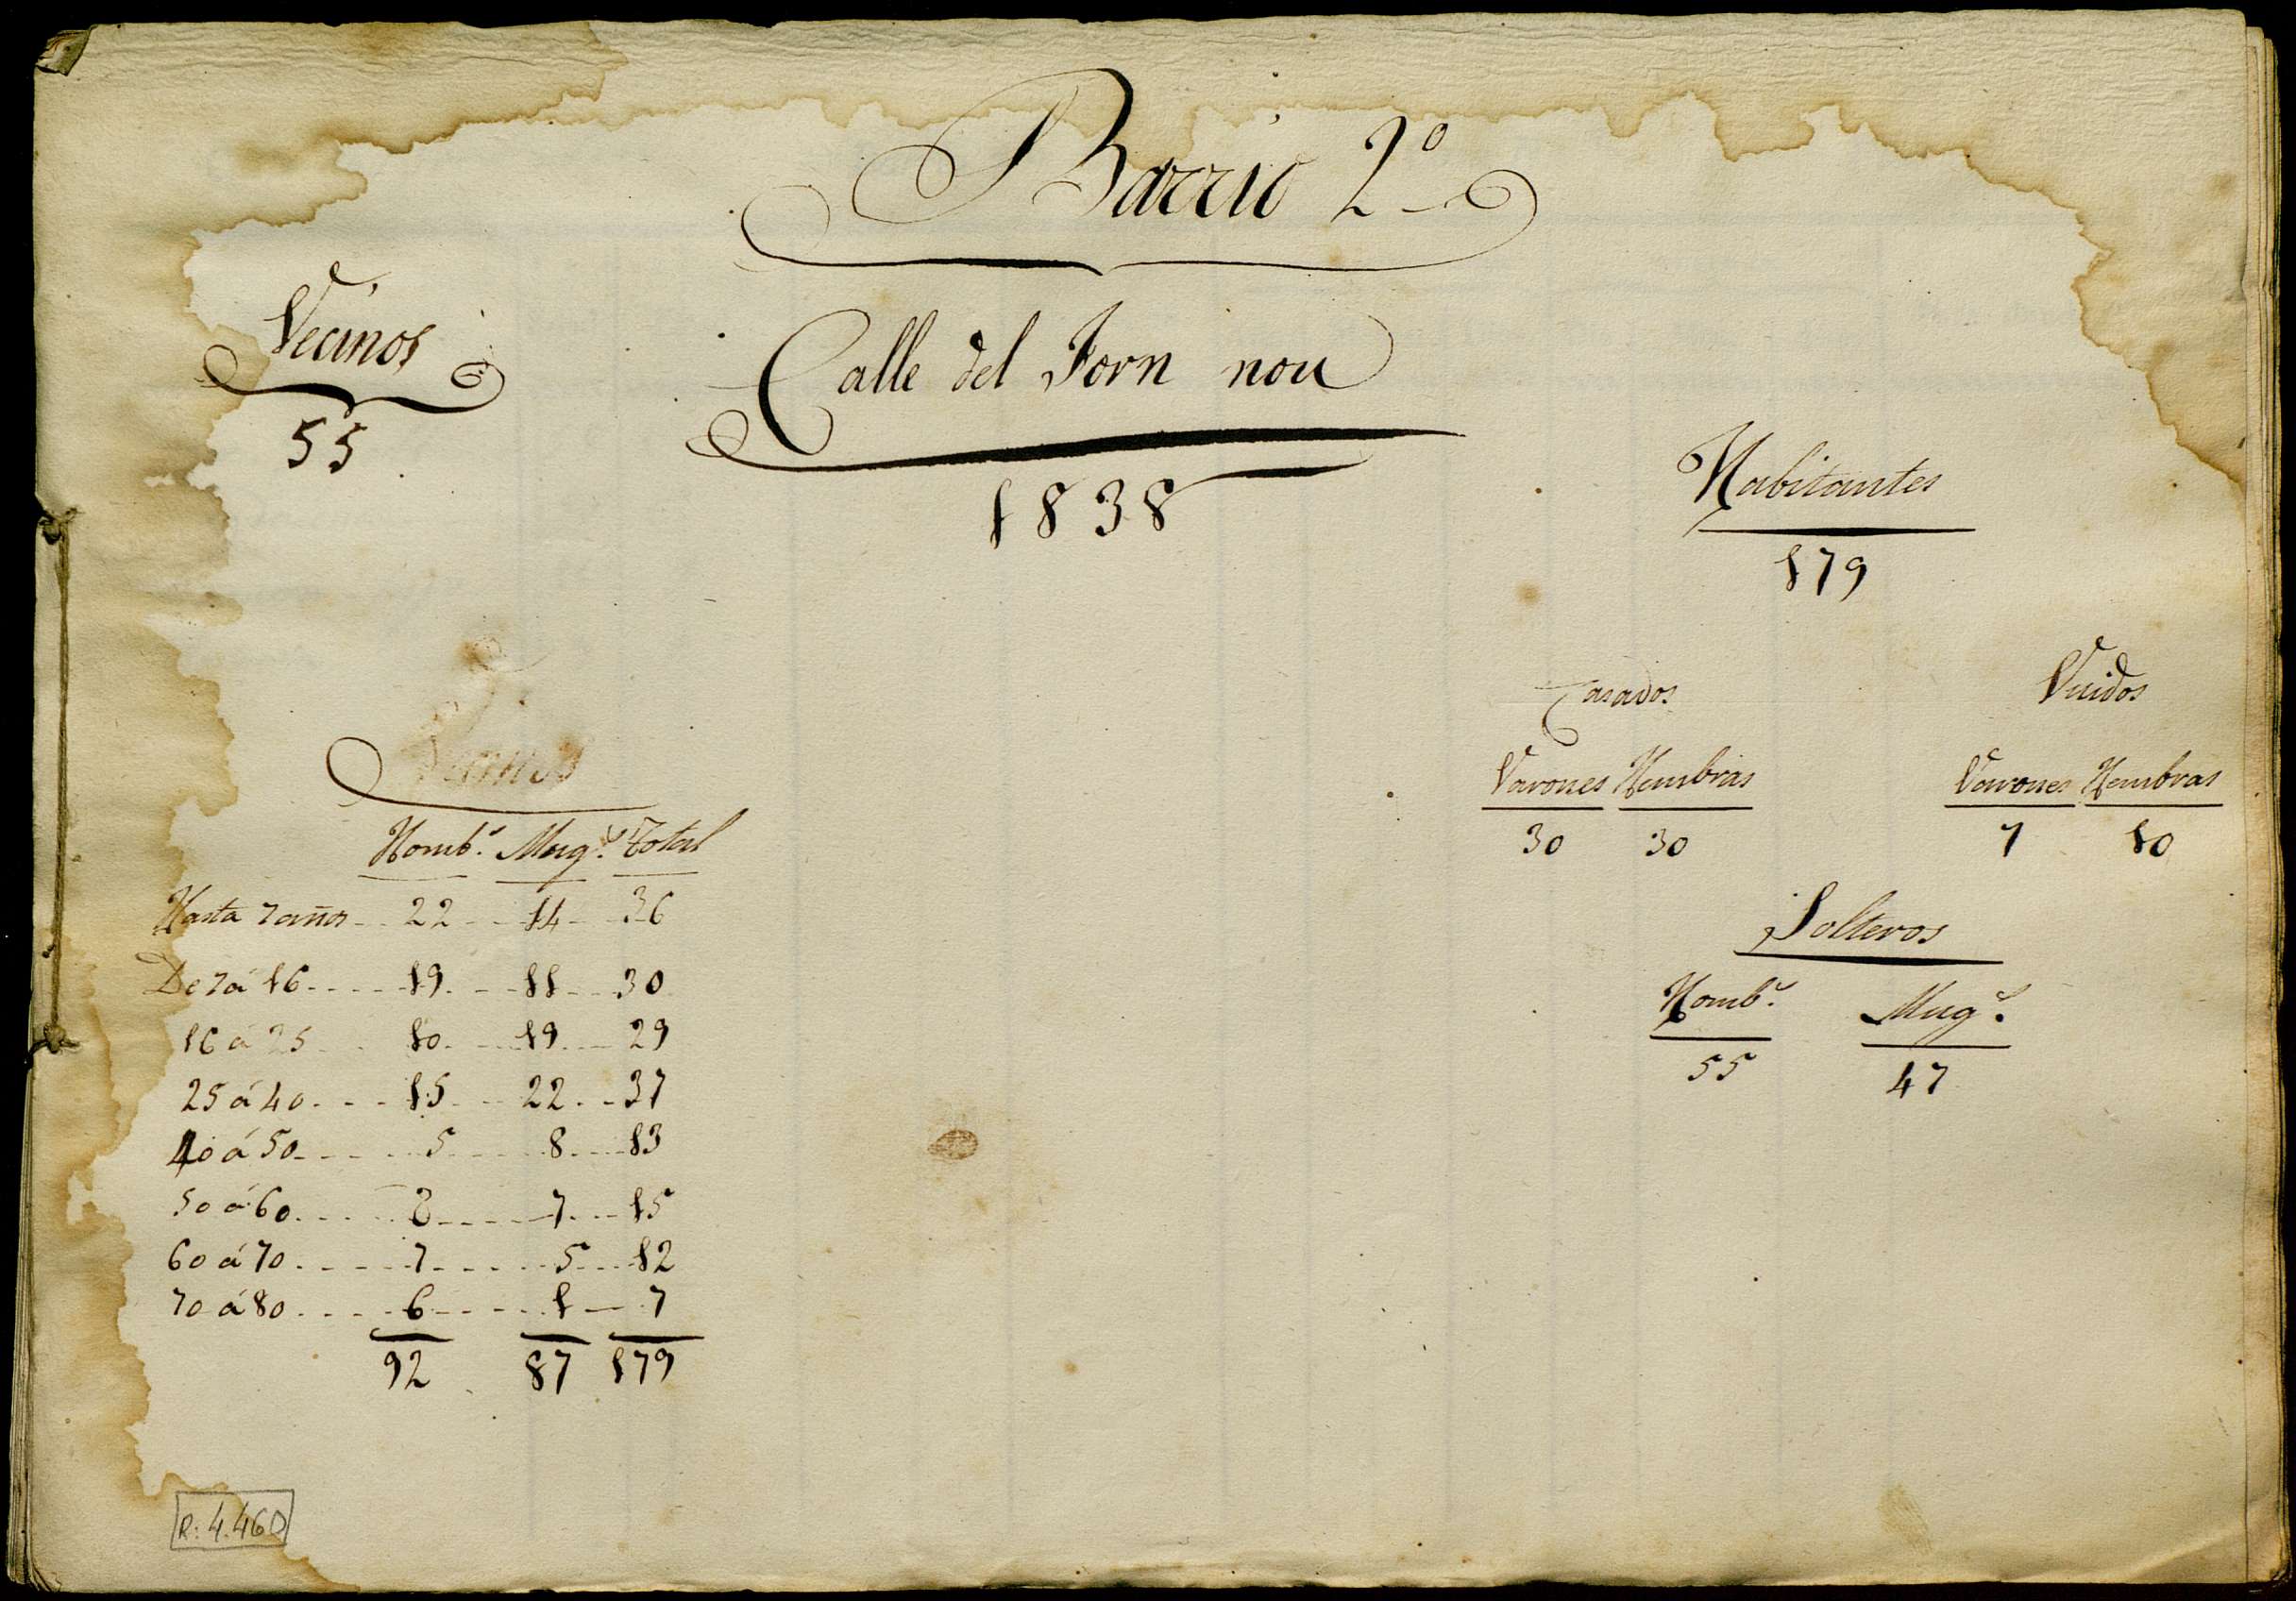 Barrio 2º
Vecinos
55
Calle del Forn nou
1838
Habitantes
179
Casados
Varones Hembras
30 30
Viudos
Varones Hembras
7 10
Solteros
Hombˢ. Mugˢ.
55 47
Vecinos
Hombˢ. Mugˢ. Total
Hasta 7 años 22 14 36
De 7 á 16 19 11 30
16 á 25 10 19 29
25 á 40 15 22 37
40 á 50 5 8 13
50 á 60 8 7 15
60 á 70 7 5 12
70 á 80 6 1 7
92 87 179
R: 4.460